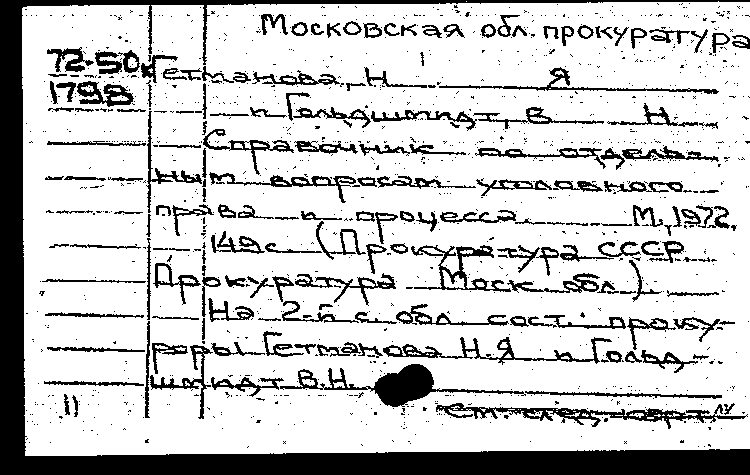 Московская обл. прокуратура
72-50к
1798
Гетманова, Н Я
и Гольдшмидт, В Н.
Справочник по отдель-
ным вопросам уголовного
права и процесса. М., 1972.
149с. (Прокуратура СССР.
Прокуратура Моск обл).
На 2-й с. обл сост.: проку-
роры Гетманова Н.Я и Гольд-
шмидт В.Н.
11
См. след. карт.